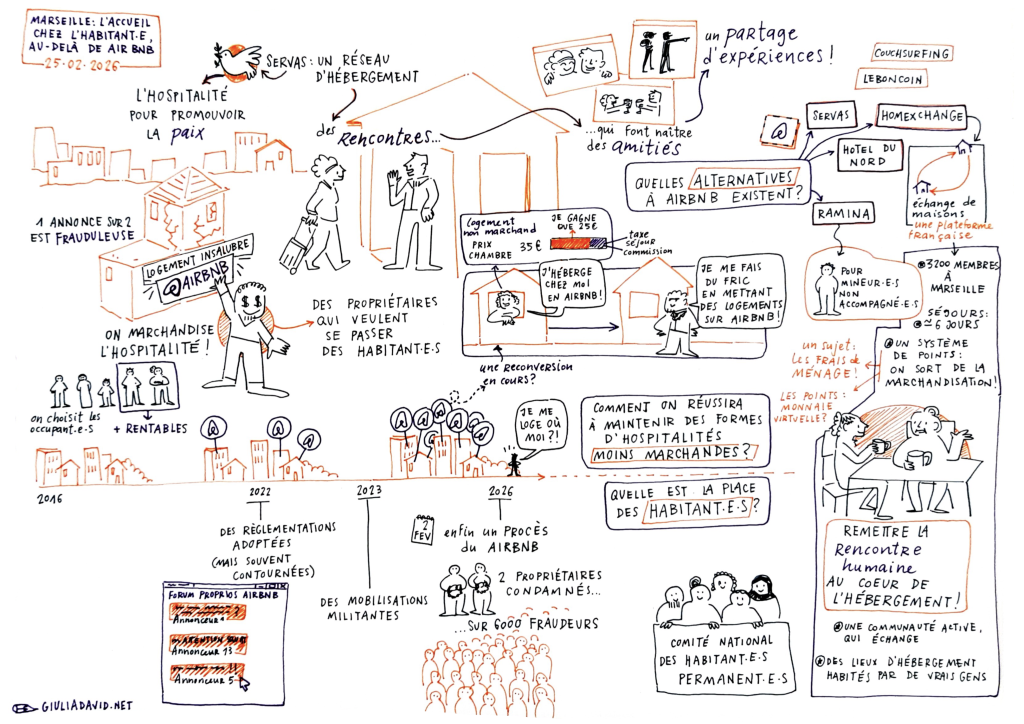 MARSEILLE: L'ACCUEIL
CHEZ L'HABITANT·E,
AU-DELÀ DE AIRBNB
25·02·2026
SERVAS: UN RÉSEAU
D'HÉBERGEMENT
L'HOSPITALITÉ
POUR PROMOUVOIR
LA paix
des
Rencontres...
...qui FONT NAÎTRE
des amitiés
un partage
d'expériences!
1 ANNONCE SUR 2
EST FRAUDULEUSE
LOGEMENT INSALUBRE
@AIRBNB
ON MARCHANDISE
L'HOSPITALITÉ!
DES PROPRIÉTAIRES
QUI VEULENT
SE PASSER
DES HABITANT·E·S
on choisit les
occupant·e·s
+ RENTABLES
Logement
non marchand
PRIX
CHAMBRE
35€
JE GAGNE
QUE 25€
taxe
séjour
commission
J'HÉBERGE
CHEZ MOI
EN AIRBNB!
JE ME FAIS
DU FRIC
EN METTANT
DES LOGEMENTS
SUR AIRBNB!
une reconversion
en cours?
JE ME
LOGE OÙ
MOI?!
COUCHSURFING
LEBONCOIN
SERVAS
HOMEXCHANGE
HOTEL DU
NORD
RAMINA
QUELLES ALTERNATIVES
À AIRBNB EXISTENT?
échange de
maisons
une plateforme
française
POUR
MINEUR·E·S
NON
ACCOMPAGNÉ·E·S
3200 MEMBRES
À
MARSEILLE
SÉJOURS:
≃ 6 JOURS
UN SYSTÈME
DE POINTS:
ON SORT DE LA
MARCHANDISATION!
un sujet:
LES FRAIS de
MÉNAGE!
LES POINTS:
MONNAIE
VIRTUELLE?
COMMENT ON RÉUSSIRA
À MAINTENIR DES FORMES
D'HOSPITALITÉS
MOINS MARCHANDES?
QUELLE EST LA PLACE
DES HABITANT·E·S?
2016
2022
2023
2026
DES RÈGLEMENTATIONS
ADOPTÉES
(MAIS SOUVENT
CONTOURNÉES)
FORUM PROPRIOS AIRBNB
Annonceur 1
Annonceur 13
Annonceur 5
DES MOBILISATIONS
MILITANTES
2
FEV
enfin un PROCÈS
DU AIRBNB
2 PROPRIÉTAIRES
CONDAMNÉS...
...SUR 6000 FRAUDEURS
COMITÉ NATIONAL
DES HABITANT·E·S
PERMANENT·E·S
REMETTRE LA
Rencontre
humaine
AU COEUR DE
L'HÉBERGEMENT!
UNE COMMUNAUTÉ ACTIVE,
QUI ÉCHANGE
DES LIEUX D'HÉBERGEMENT
HABITÉS PAR DE VRAIS GENS
GIULIADAVID.NET